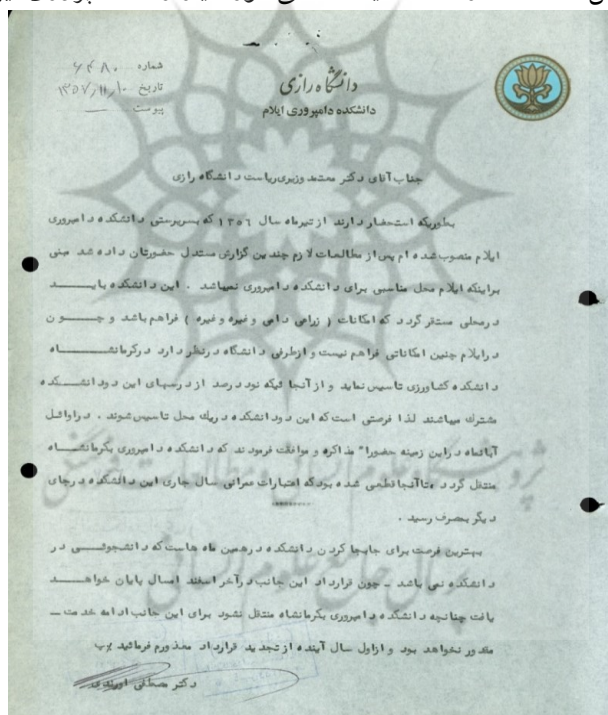 شماره ۶۴۸۰
تاریخ ۱۳۵۷/۱۱/۱۰
پیوست —
دانشگاه رازی
دانشکده دامپروری ایلام
جناب آقای دکتر معتمد وزیری ریاست دانشگاه رازی
بطوریکه استحضار دارند از تیرماه سال ۱۳۵۶ که بسرپرستی دانشکده دامپروری
ایلام منصوب شده ام پس از مطالعات لازم چندین گزارش مستدل حضورتان داده شد مبنی
براینکه ایلام محل مناسبی برای دانشکده دامپروری نمیباشد . این دانشکده بایـــد
درمحلی مستقر گردد که امکانات ( زراعی دامی وغیره وغیره ) فراهم باشد و چـــون
درایلام چنین امکاناتی فراهم نیست و ازطرفی دانشگاه درنظر دارد درکرمانشـــاه
دانشکده کشاورزی تاسیس نماید و از آنجا ئیکه نود درصد از درسهای این دودانشـــکده
مشترك میباشند لذا فرصتی است که این دودانشکده دریك محل تاسیس شوند . دراوائل
آبانماه دراین زمینه حضورا" مذاکره و موافقت فرمودند که دانشکده دامپروری بکرمانشـــاه
منتقل گردد ،تاآنجا قطعی شده بود که اعتبارات عمرانی سال جاری این دانشکده درجای
دیگر بمصرف رسید .
بهترین فرصت برای جابجا کردن دانشکده درهمین ماه هاست که دانشجوئـــی در
دانشکده نمی باشد ـ چون قرارداد این جانب درآخر اسفند امسال پایان خواهـــد
یافت چنانچه دانشکده دامپروری بکرمانشاه منتقل نشود برای این جانب ادامه خدمت ـ
مقدور نخواهد بود و ازاول سال آینده از تجدید قرارداد معذورم فرمائید
دکتر مصطفی
پژوهشگاه علوم انسانی و مطالعات فرهنگی
پرتال جامع علوم انسانی